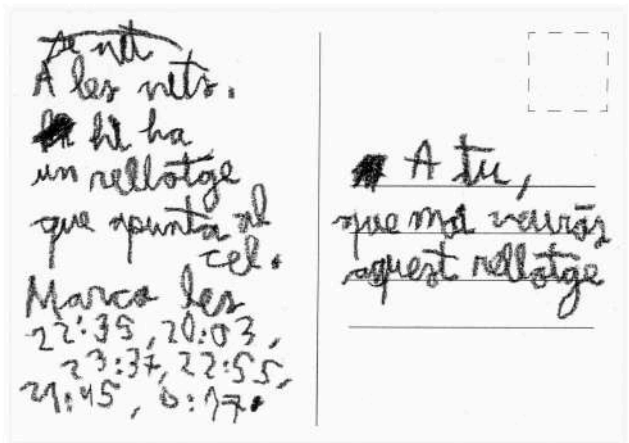 De nit
A les nits.
hi ha
un rellotge
que apunta al
cel.
Marca les
22:35, 20:03,
23:37, 22:55,
21:45, 0:17.
A tu,
que mai veuràs
aquest rellotge